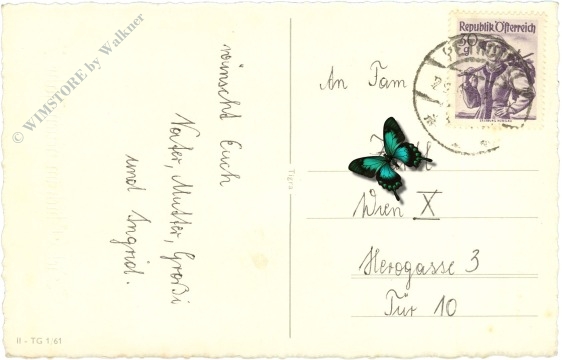 © WIMSTORE by Walkner
wünscht Euch
Vater, Mutter, Großi
und Ingrid.
Tigra
II - TG 1/61
Republik Österreich
30
gr
An Fam
Wien X
Herogasse 3
Tür 10